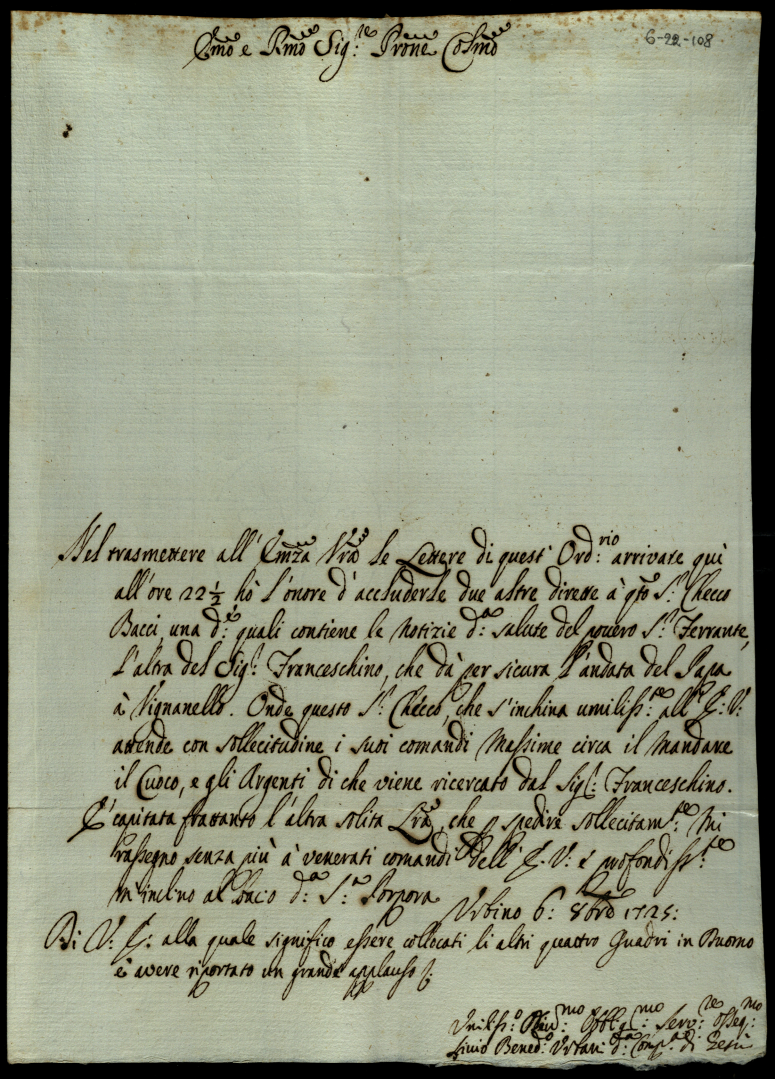 Emo e Rmo Sig:re Prone Colmo
6-22-108
Nel trasmettere all' Emza Vra le Lettere di quest' Ord:rio arrivate quì
all'ore 22½ hò l'onore d'accluderle due altre dirette à qto S:r Checco
Bacci, una d:e quali contiene le Notizie d:a salute del povero S:r Ferrante,
l'altra del Sig:r Franceschino, che dà per sicura l'andata del Papa
à Vignanello. Onde questo S:r Checco, che s'inchina umiliss:te all' E. V:
attende con sollecitudine i suoi comandi Massime circa il mandare
il Cuoco, e gli Argenti di che viene ricercato dal Sig:r Franceschino.
E' capitata frattanto l'altra solita Lra, che spedire sollecitam:te Mi
rassegno senza più à venerati comandi dell' E. V: e profondiss:te
m'inclino al bacio d:a S:a Porpora
Urbino 6: 8bre 1725:
Di V: E: alla quale significo essere collocati li altri quattro Quadri in Duomo
e avere riportato un grande applauso
Umiliss:o Obblig:mo Serv:re osseq:mo
Livio Bened:o Urbani d:a Comp:a di Gesù